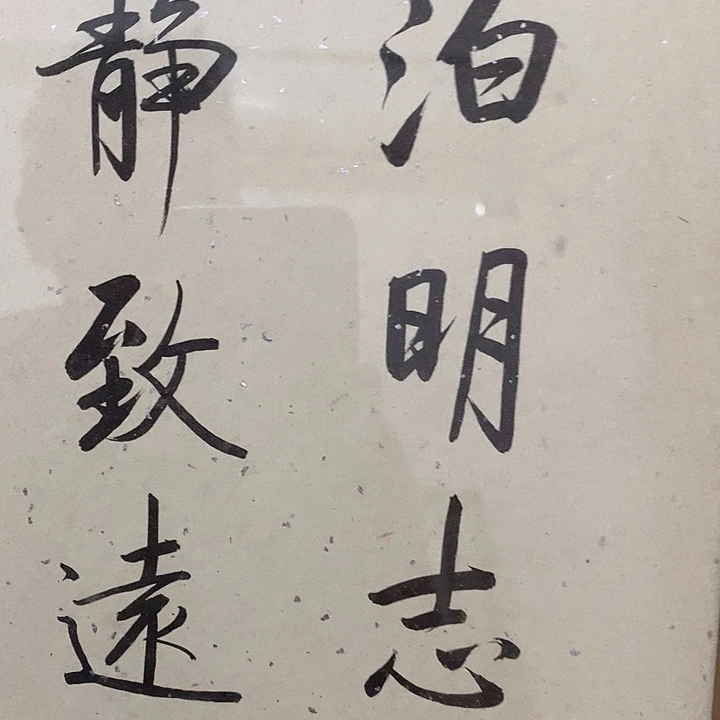 泊明志
静致遠